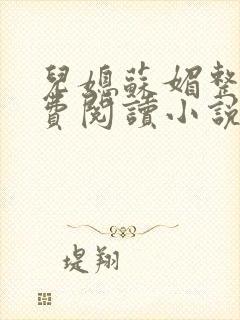 兒媳蘇媚整
費閱讀小說
堤翔